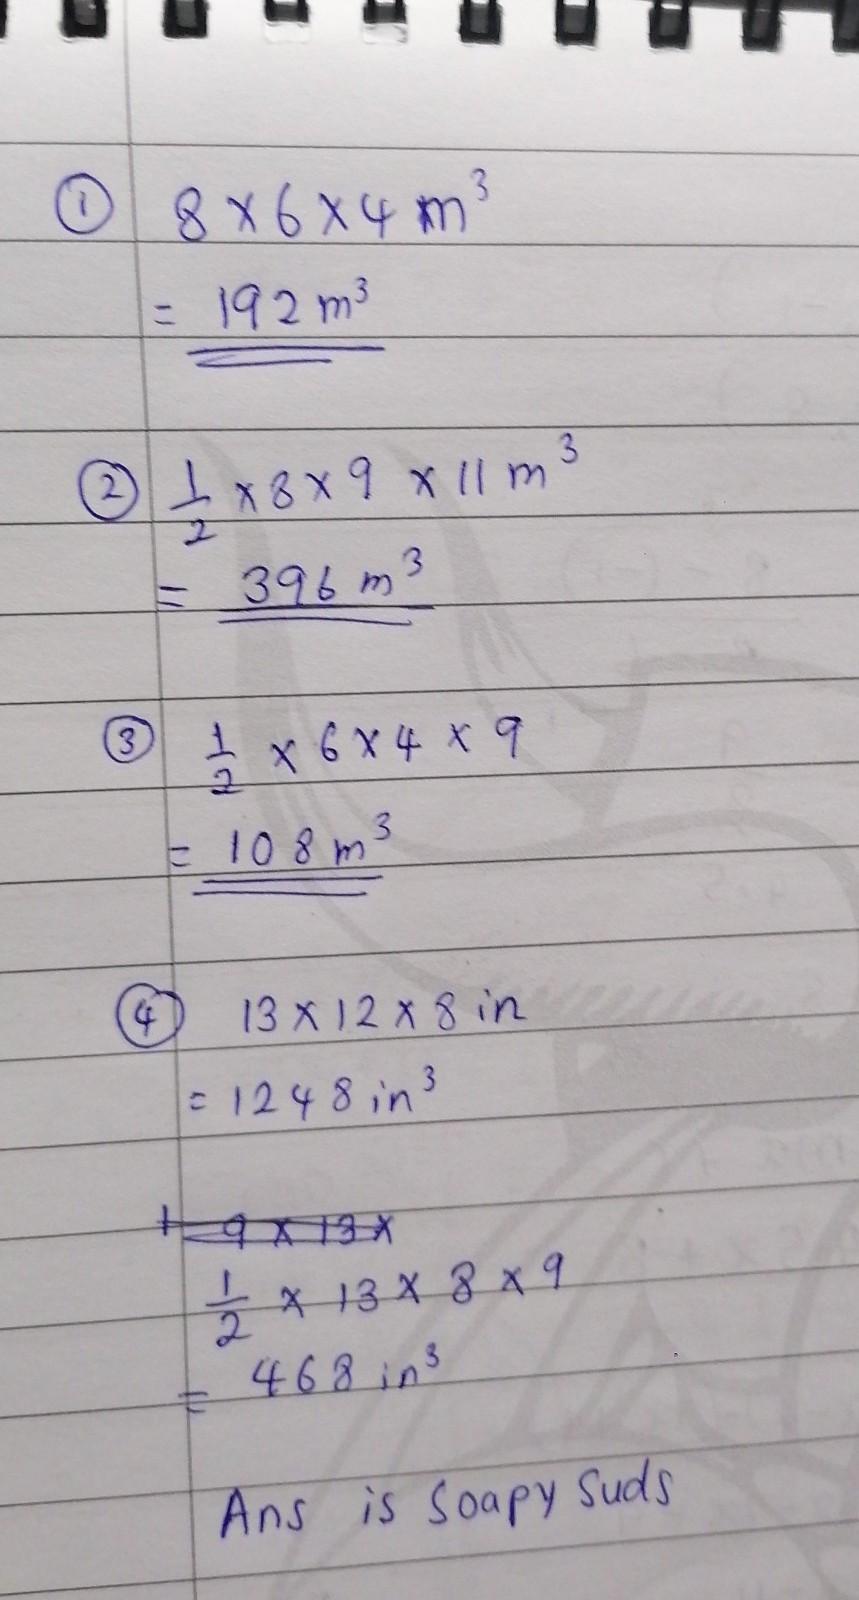 ① 8 × 6 × 4 m³
= 192 m³
② 1/2 × 8 × 9 × 11 m³
= 396 m³
③ 1/2 × 6 × 4 × 9
= 108 m³
④ 13 × 12 × 8 in
= 1248 in³
9 × 13 ×
1/2 × 13 × 8 × 9
= 468 in³
Ans is Soapy Suds